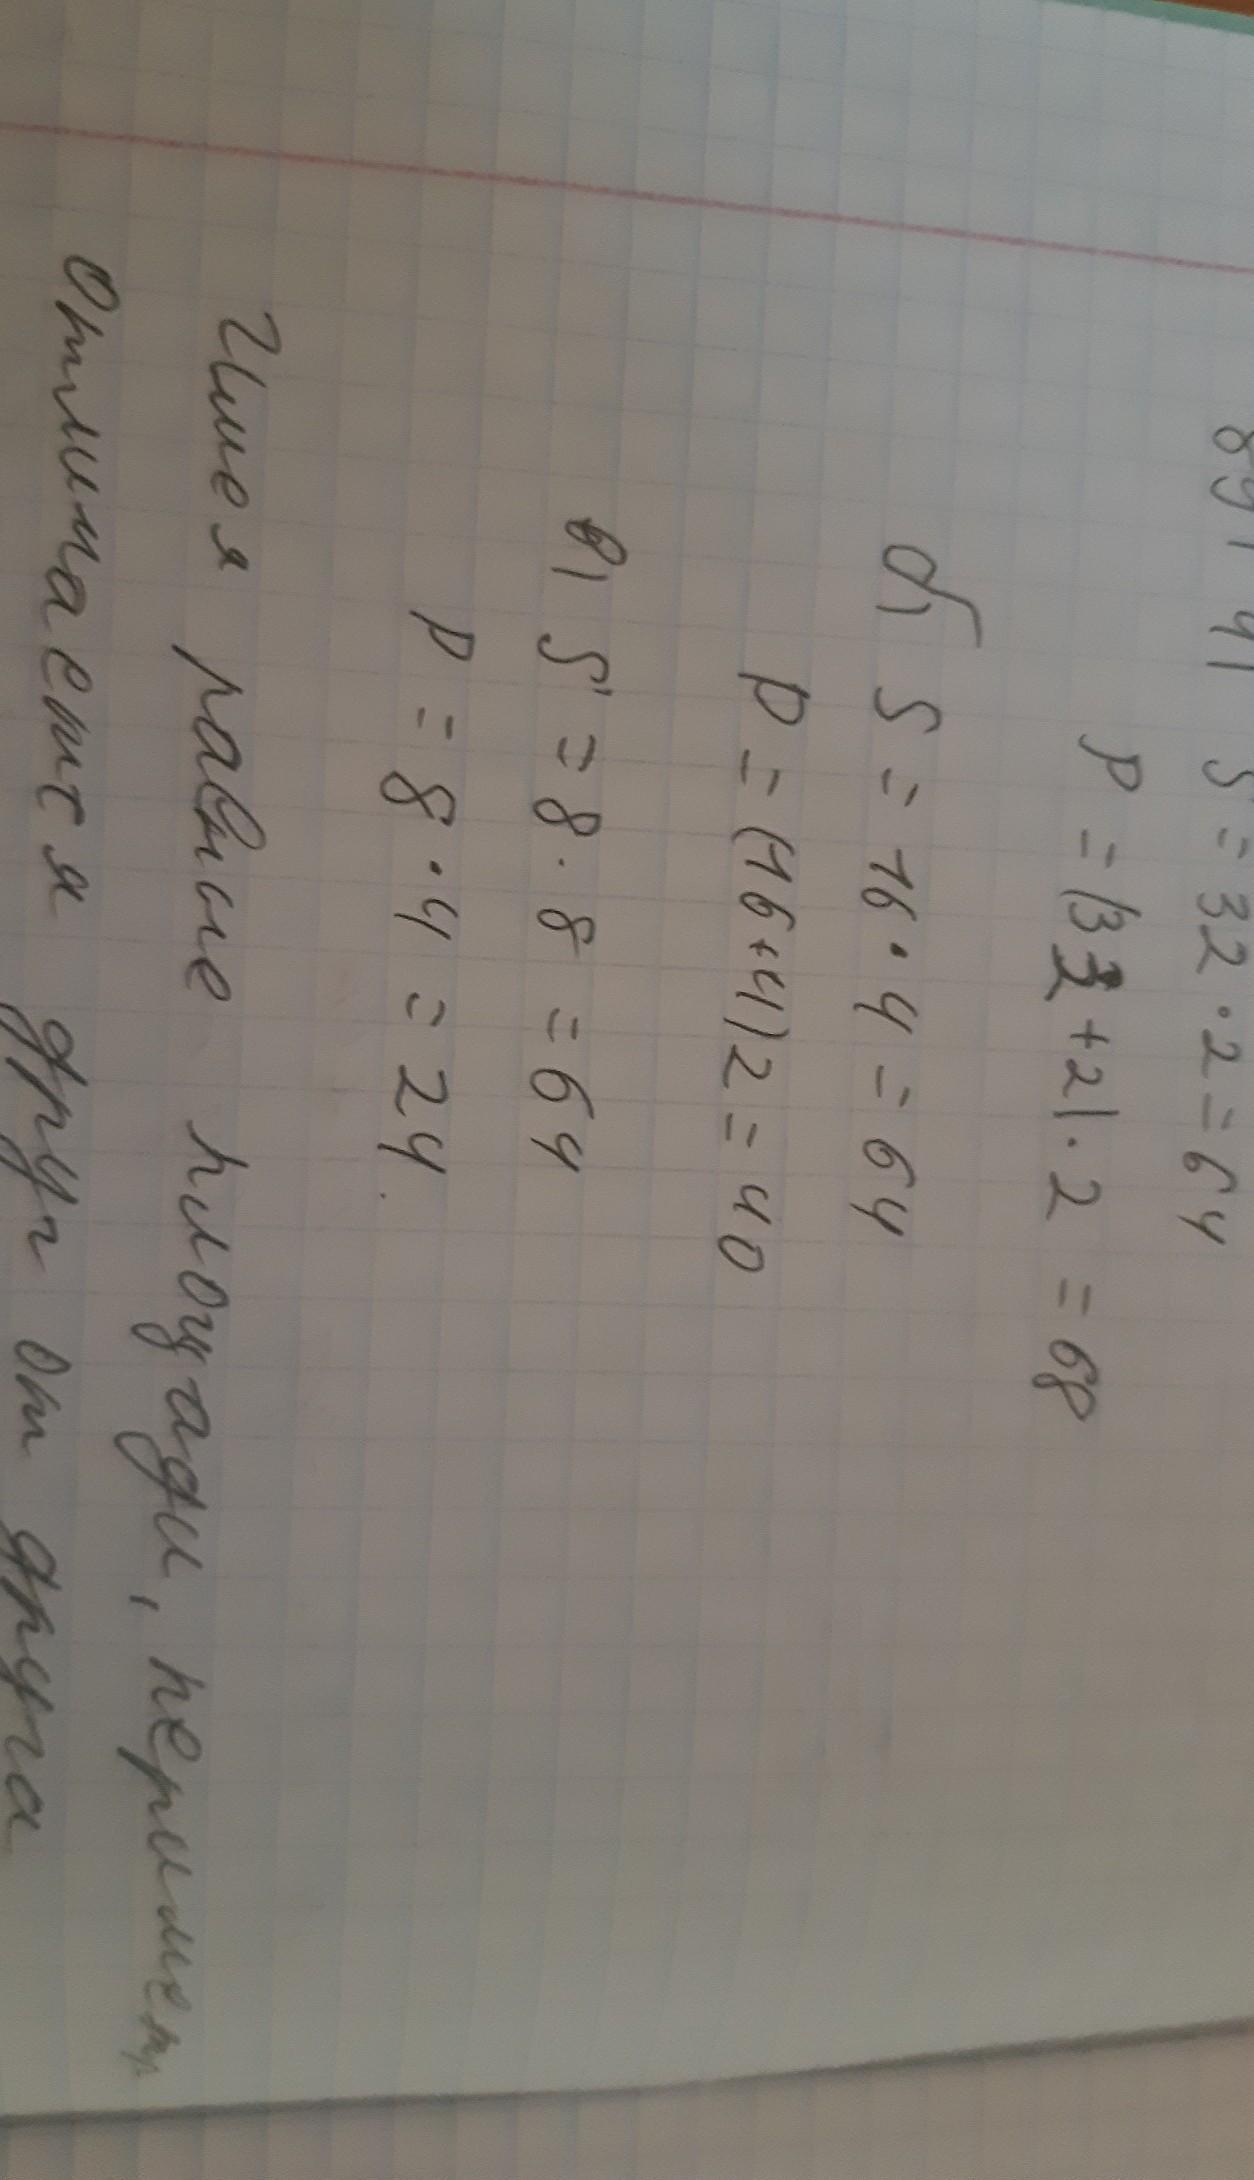 S = 32 · 2 = 64
P = (32 + 2) · 2 = 68
б) S = 16 · 4 = 64
P = (16 + 4) 2 = 40
в) S = 8 · 8 = 64
P = 8 · 4 = 24.
Имея равные площади, периметр
отличается друг от друга